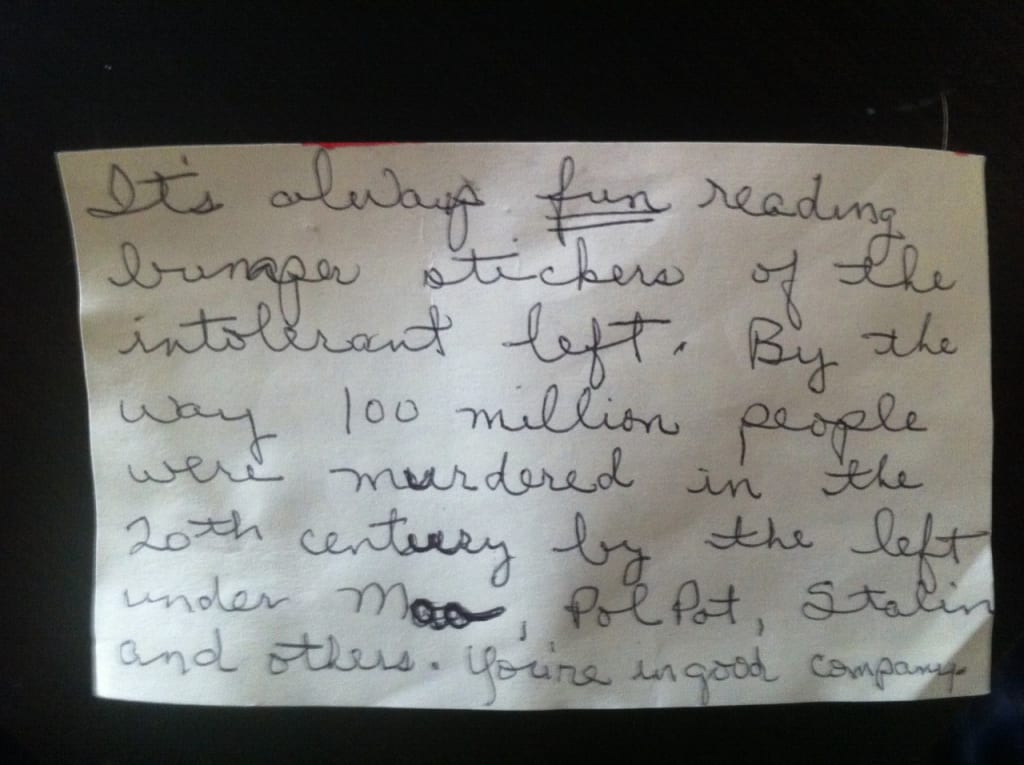 It's always fun reading
bumper stickers of the
intolerant left. By the
way 100 million people
were murdered in the
20th century by the left
under Mao, Pol Pot, Stalin
and others. You're in good company.